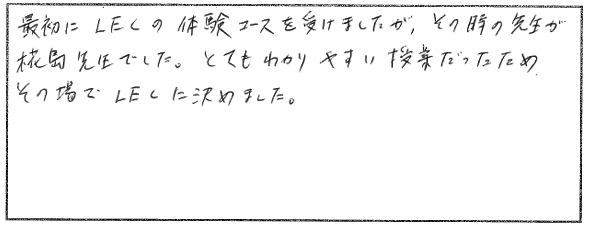 最初にLECの体験コースを受けましたが、その時の先生が
椛島先生でした。とてもわかりやすい授業だったため
その場でLECに決めました。